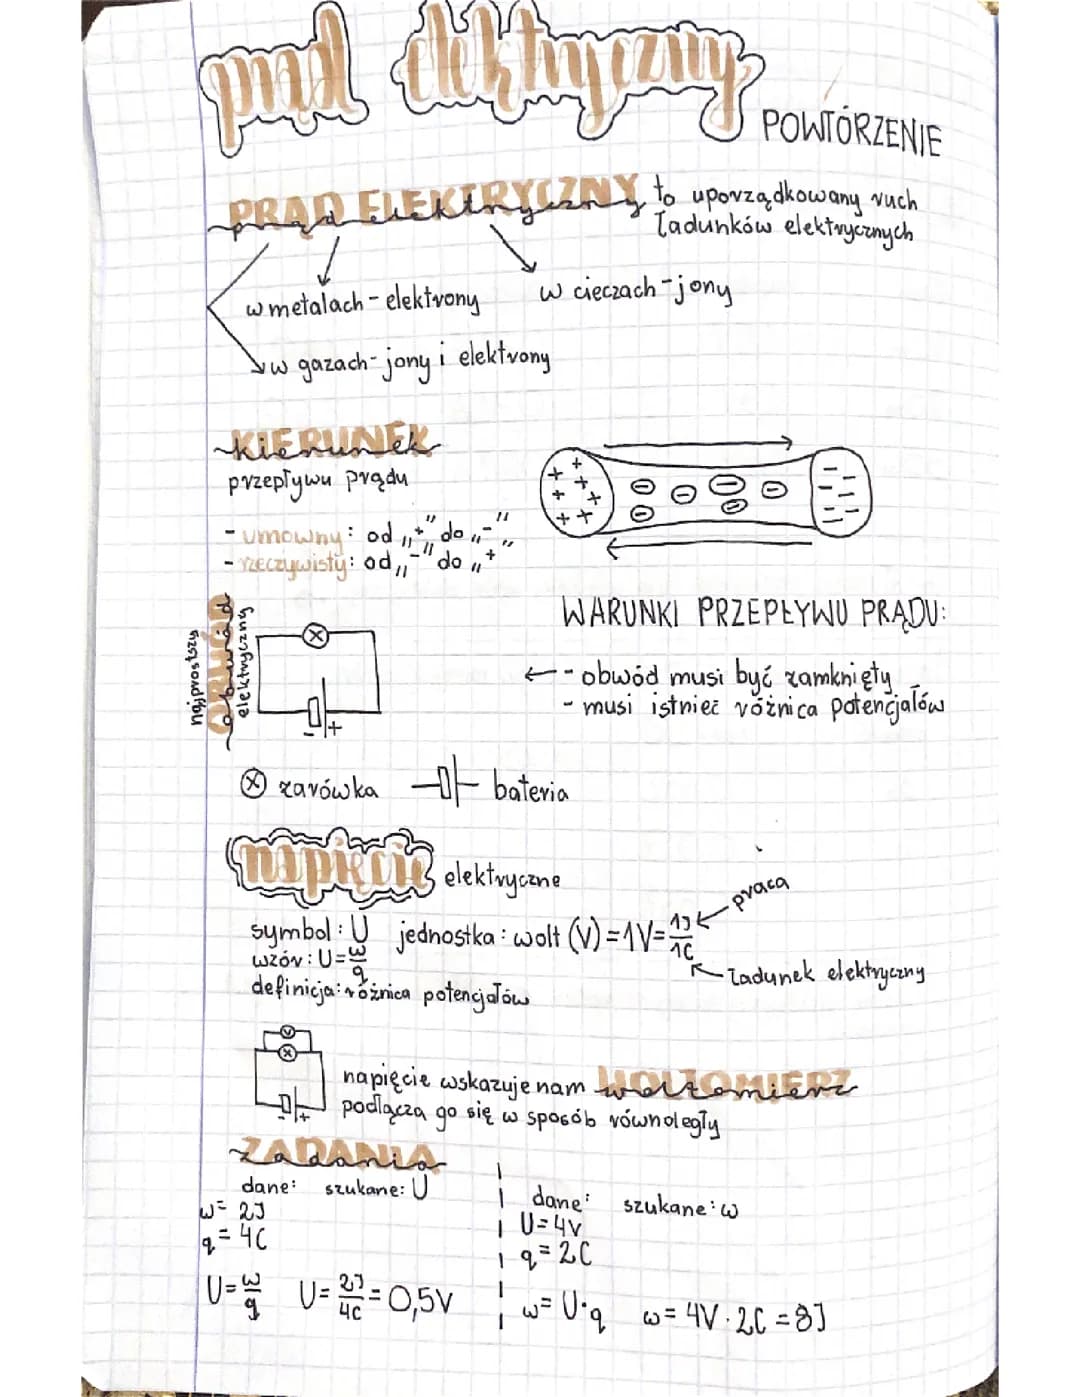 prąd elektryczny
POWTÓRZENIE
PRĄD ELEKTRYCZNY to uporządkowany ruch
ładunków elektrycznych
w metalach - elektrony
w cieczach - jony
w gazach - jony i elektrony
KIERUNEK
przepływu prądu
- umowny: od „+” do „-”
- rzeczywisty: od „-” do „+”
+ + + + + + + +
- - - - - -
- - - - - - - -
najprostszy
OBWÓD
elektryczny
- +
WARUNKI PRZEPŁYWU PRĄDU:
← - obwód musi być zamknięty
- musi istnieć różnica potencjałów
żarówka
bateria
napięcie elektryczne
symbol: U jednostka: wolt (V) = 1V = 1J/1C
praca
ładunek elektryczny
wzór: U = w/q
definicja: różnica potencjałów
V
- +
napięcie wskazuje nam WOLTOMIERZ
podłącza go się w sposób równoległy
ZADANIA
dane: szukane: U
w = 2J
q = 4C
U = w/q U = 2J/4C = 0,5V
dane: szukane: w
U = 4V
q = 2C
w = U·q w = 4V · 2C = 8J